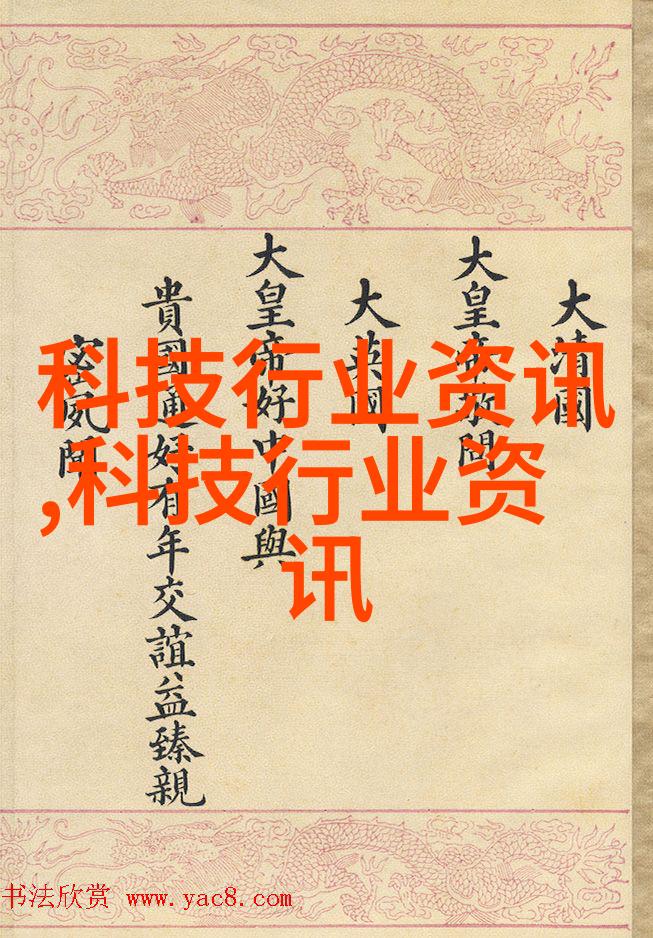 大清國
大皇帝敬問
大英國
大皇帝好中國與
貴國通好有年交誼益臻親
密
科技行业资讯
,科技行业资
讯
书法欣赏 www.yac8.com